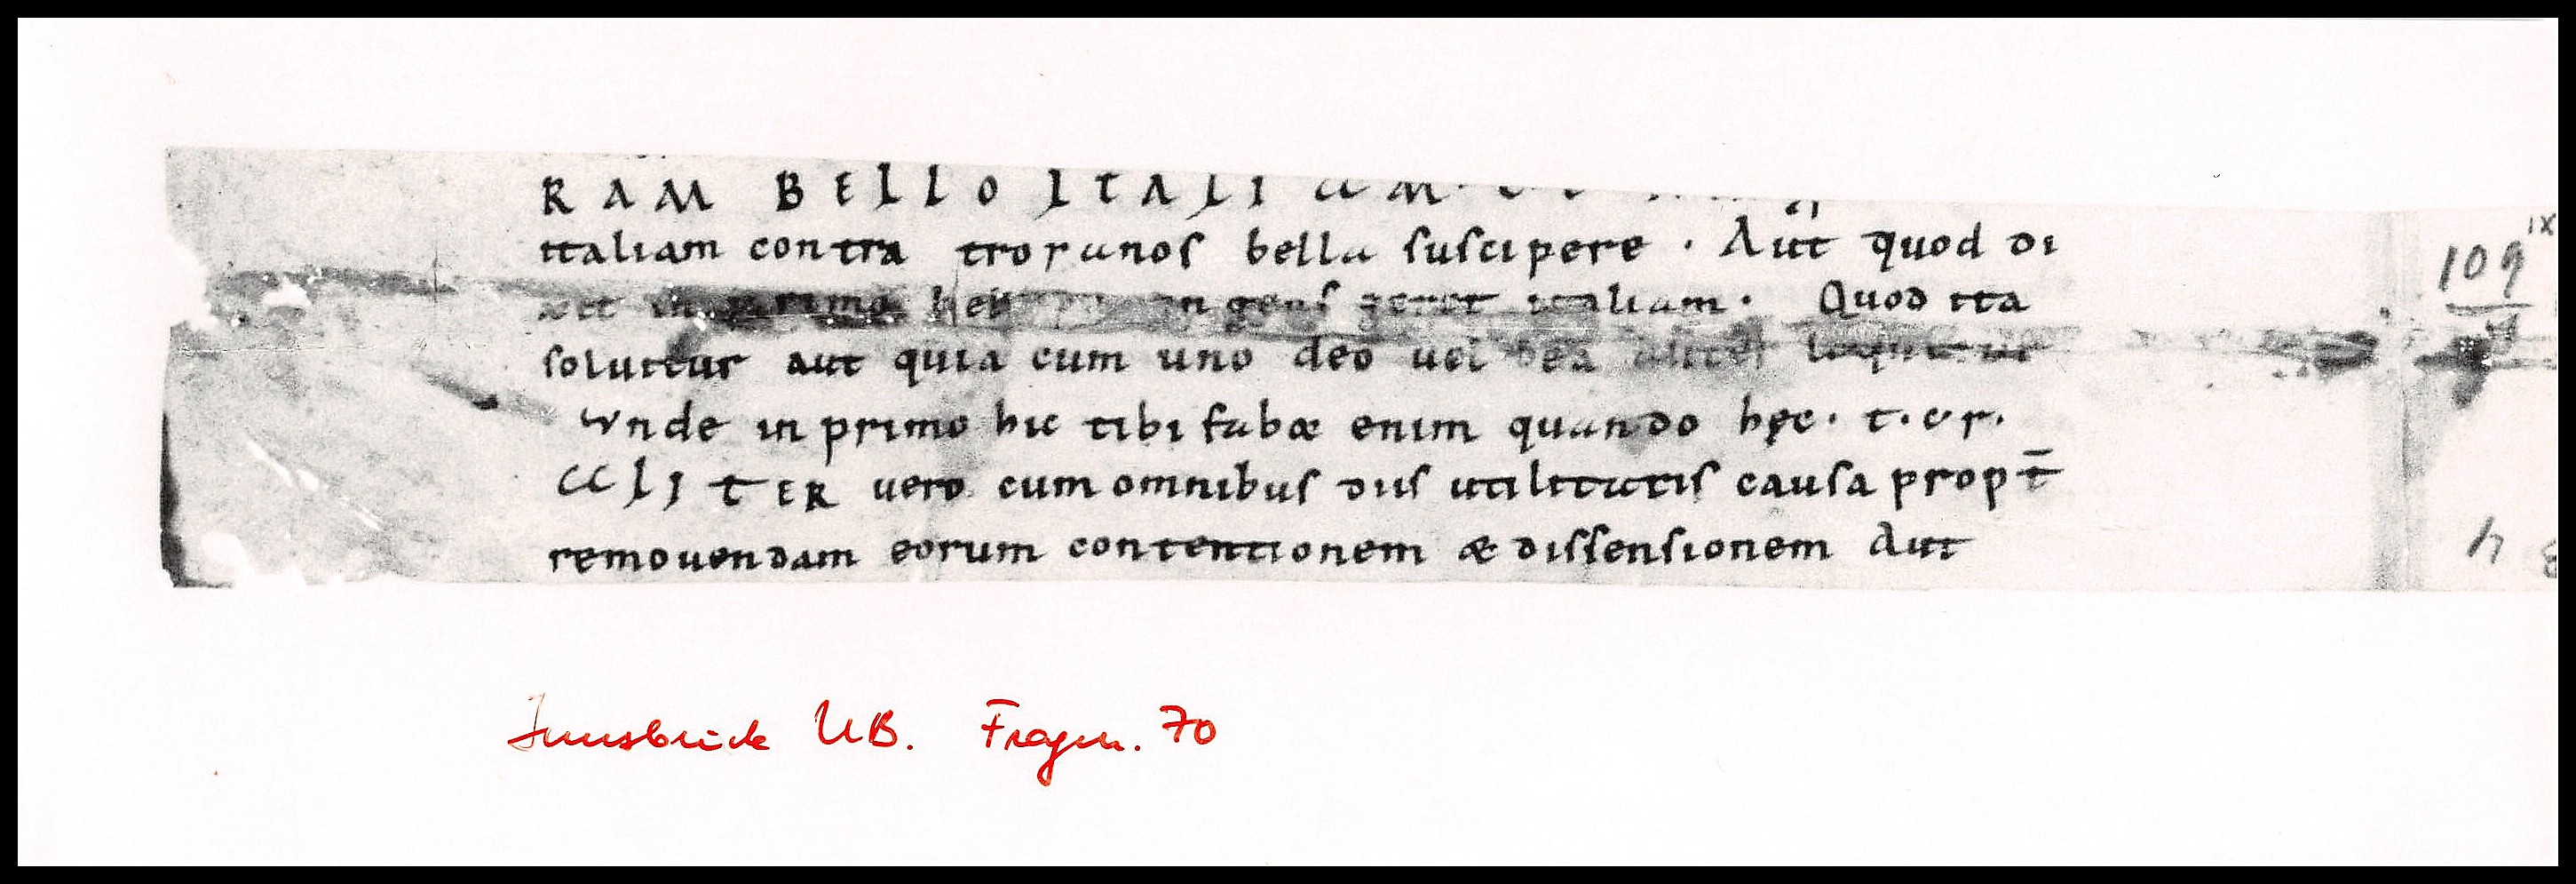 RAM BELLO ITALIAM
italiam contra troianos bella suscipere . Aut quod di
xit in primo bell ingens geret italiam . Quod ita
soluitur aut quia cum uno deo uel dea loquitur
Vnde in primo hic tibi fabæ enim quando hęc . t . c r .
ALITER uero cum omnibus diis utilitatis causa propt̄
remouendam eorum contentionem & dissensionem Aut
109 IX
h
Innsbruck UB. Fragm. 70